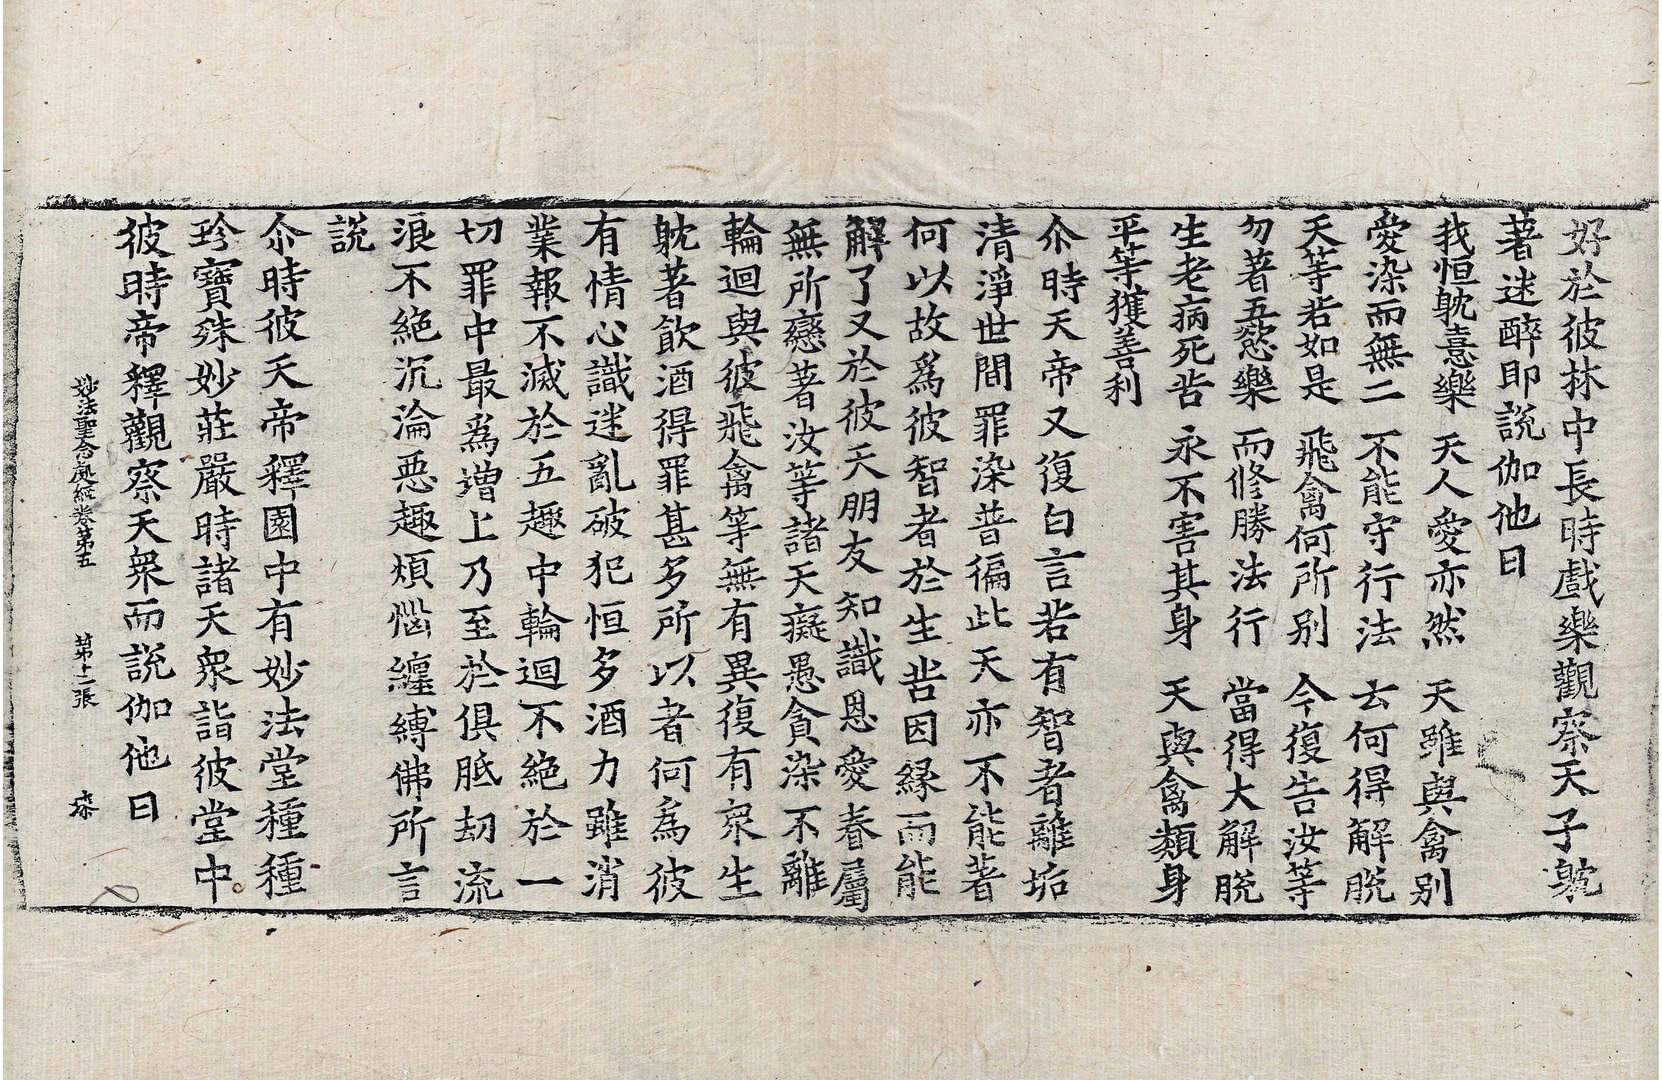 好於彼林中長時戲樂觀察天子躭
著迷醉即說伽他曰
我恒躭憙樂 天人愛亦然 天雖與禽別
愛染而無二 不能守行法 云何得解脫
天等若如是 飛禽何所別 今復告汝等
勿著五慾樂 而修勝法行 當得大解脫
生老病死苦 永不害其身 天與禽類身
平等獲善利
尒時天帝又復白言若有智者離垢
清淨世間罪染普徧此天亦不能著
何以故爲彼智者於生苦因緣而能
解了又於彼天朋友知識恩愛眷屬
無所戀著汝等諸天癡愚貪染不離
輪迴與彼飛禽等無有異復有衆生
躭著飲酒得罪甚多所以者何爲彼
有情心識迷亂破犯恒多酒力雖消
業報不滅於五趣中輪迴不絕於一
切罪中最爲增上乃至於俱胝劫流
浪不絕沉淪惡趣煩惱纏縛佛所言
說
尒時彼天帝釋園中有妙法堂種種
珍寶殊妙莊嚴時諸天衆詣彼堂中
彼時帝釋觀察天衆而說伽他曰
妙法聖念處經卷第五 第十二張